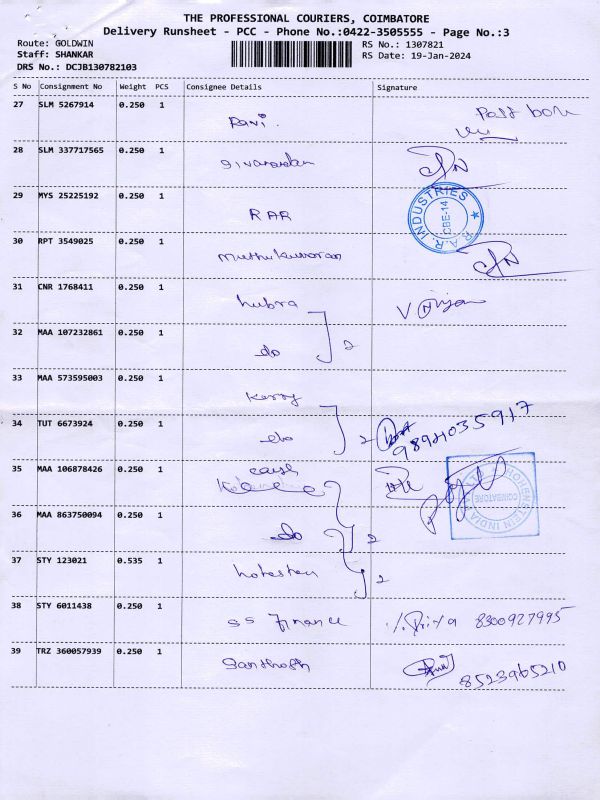 THE PROFESSIONAL COURIERS, COIMBATORE
Delivery Runsheet - PCC - Phone No.:0422-3505555 - Page No.:3
Route: GOLDWIN
Staff: SHANKAR
DRS No.: DCJB130782103
RS No.: 1307821
RS Date: 19-Jan-2024
S No Consignment No Weight PCS Consignee Details Signature
27 SLM 5267914 0.250 1
Ravi
28 SLM 337717565 0.250 1
29 MYS 25225192 0.250 1
RAR
R.A.R. INDUSTRIES
CBE-14
30 RPT 3549025 0.250 1
muthukumaran
31 CNR 1768411 0.250 1
hubra
32 MAA 107232861 0.250 1
do 2
33 MAA 573595003 0.250 1
Kerry
34 TUT 6673924 0.250 1
do 2 9894035917
35 MAA 106878426 0.250 1
HOHENSTEIN INDIA
COIMBATORE
36 MAA 863750094 0.250 1
do 2
37 STY 123021 0.535 1
2
38 STY 6011438 0.250 1
SS Finance Priya 8300927995
39 TRZ 360057939 0.250 1
Santhosh 8523965210